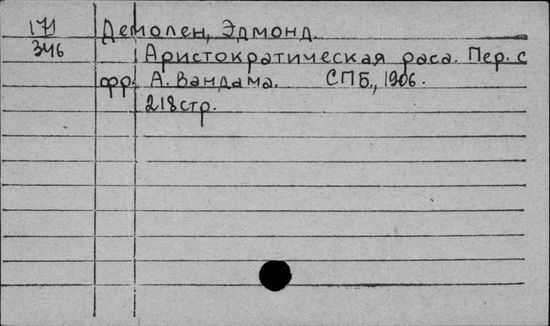 171 Демолен, Эдмонд.
346 Аристократическая раса. Пер. с
фр. А. Вандама. СПБ., 1906.
218 стр.